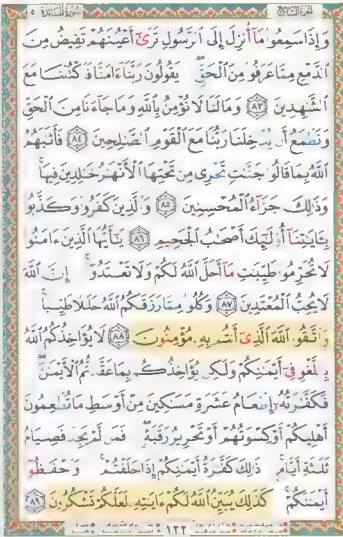 الجزء السابع سورة المائدة ٥
وَإِذَا سَمِعُوا۟ مَآ أُنزِلَ إِلَى ٱلرَّسُولِ تَرَىٰٓ أَعْيُنَهُمْ تَفِيضُ مِنَ
ٱلدَّمْعِ مِمَّا عَرَفُوا۟ مِنَ ٱلْحَقِّ ۖ يَقُولُونَ رَبَّنَآ ءَامَنَّا فَٱكْتُبْنَا مَعَ
ٱلشَّٰهِدِينَ ٨٣ وَمَا لَنَا لَا نُؤْمِنُ بِٱللَّهِ وَمَا جَآءَنَا مِنَ ٱلْحَقِّ
وَنَطْمَعُ أَن يُدْخِلَنَا رَبُّنَا مَعَ ٱلْقَوْمِ ٱلصَّٰلِحِينَ ٨٤ فَأَثَٰبَهُمُ
ٱللَّهُ بِمَا قَالُوا۟ جَنَّٰتٍ تَجْرِى مِن تَحْتِهَا ٱلْأَنْهَٰرُ خَٰلِدِينَ فِيهَا ۚ
وَذَٰلِكَ جَزَآءُ ٱلْمُحْسِنِينَ ٨٥ وَٱلَّذِينَ كَفَرُوا۟ وَكَذَّبُوا۟
بِـَٔايَٰتِنَآ أُو۟لَٰٓئِكَ أَصْحَٰبُ ٱلْجَحِيمِ ٨٦ يَٰٓأَيُّهَا ٱلَّذِينَ ءَامَنُوا۟
لَا تُحَرِّمُوا۟ طَيِّبَٰتِ مَآ أَحَلَّ ٱللَّهُ لَكُمْ وَلَا تَعْتَدُوٓا۟ ۚ إِنَّ ٱللَّهَ
لَا يُحِبُّ ٱلْمُعْتَدِينَ ٨٧ وَكُلُوا۟ مِمَّا رَزَقَكُمُ ٱللَّهُ حَلَٰلًا طَيِّبًا ۚ
وَٱتَّقُوا۟ ٱللَّهَ ٱلَّذِىٓ أَنتُم بِهِۦ مُؤْمِنُونَ ٨٨ لَا يُؤَاخِذُكُمُ ٱللَّهُ
بِٱللَّغْوِ فِىٓ أَيْمَٰنِكُمْ وَلَٰكِن يُؤَاخِذُكُم بِمَا عَقَّدتُّمُ ٱلْأَيْمَٰنَ ۖ
فَكَفَّٰرَتُهُۥٓ إِطْعَامُ عَشَرَةِ مَسَٰكِينَ مِنْ أَوْسَطِ مَا تُطْعِمُونَ
أَهْلِيكُمْ أَوْ كِسْوَتُهُمْ أَوْ تَحْرِيرُ رَقَبَةٍ ۖ فَمَن لَّمْ يَجِدْ فَصِيَامُ
ثَلَٰثَةِ أَيَّامٍ ۚ ذَٰلِكَ كَفَّٰرَةُ أَيْمَٰنِكُمْ إِذَا حَلَفْتُمْ ۚ وَٱحْفَظُوٓا۟
أَيْمَٰنَكُمْ ۚ كَذَٰلِكَ يُبَيِّنُ ٱللَّهُ لَكُمْ ءَايَٰتِهِۦ لَعَلَّكُمْ تَشْكُرُونَ ٨٩
١٢٢